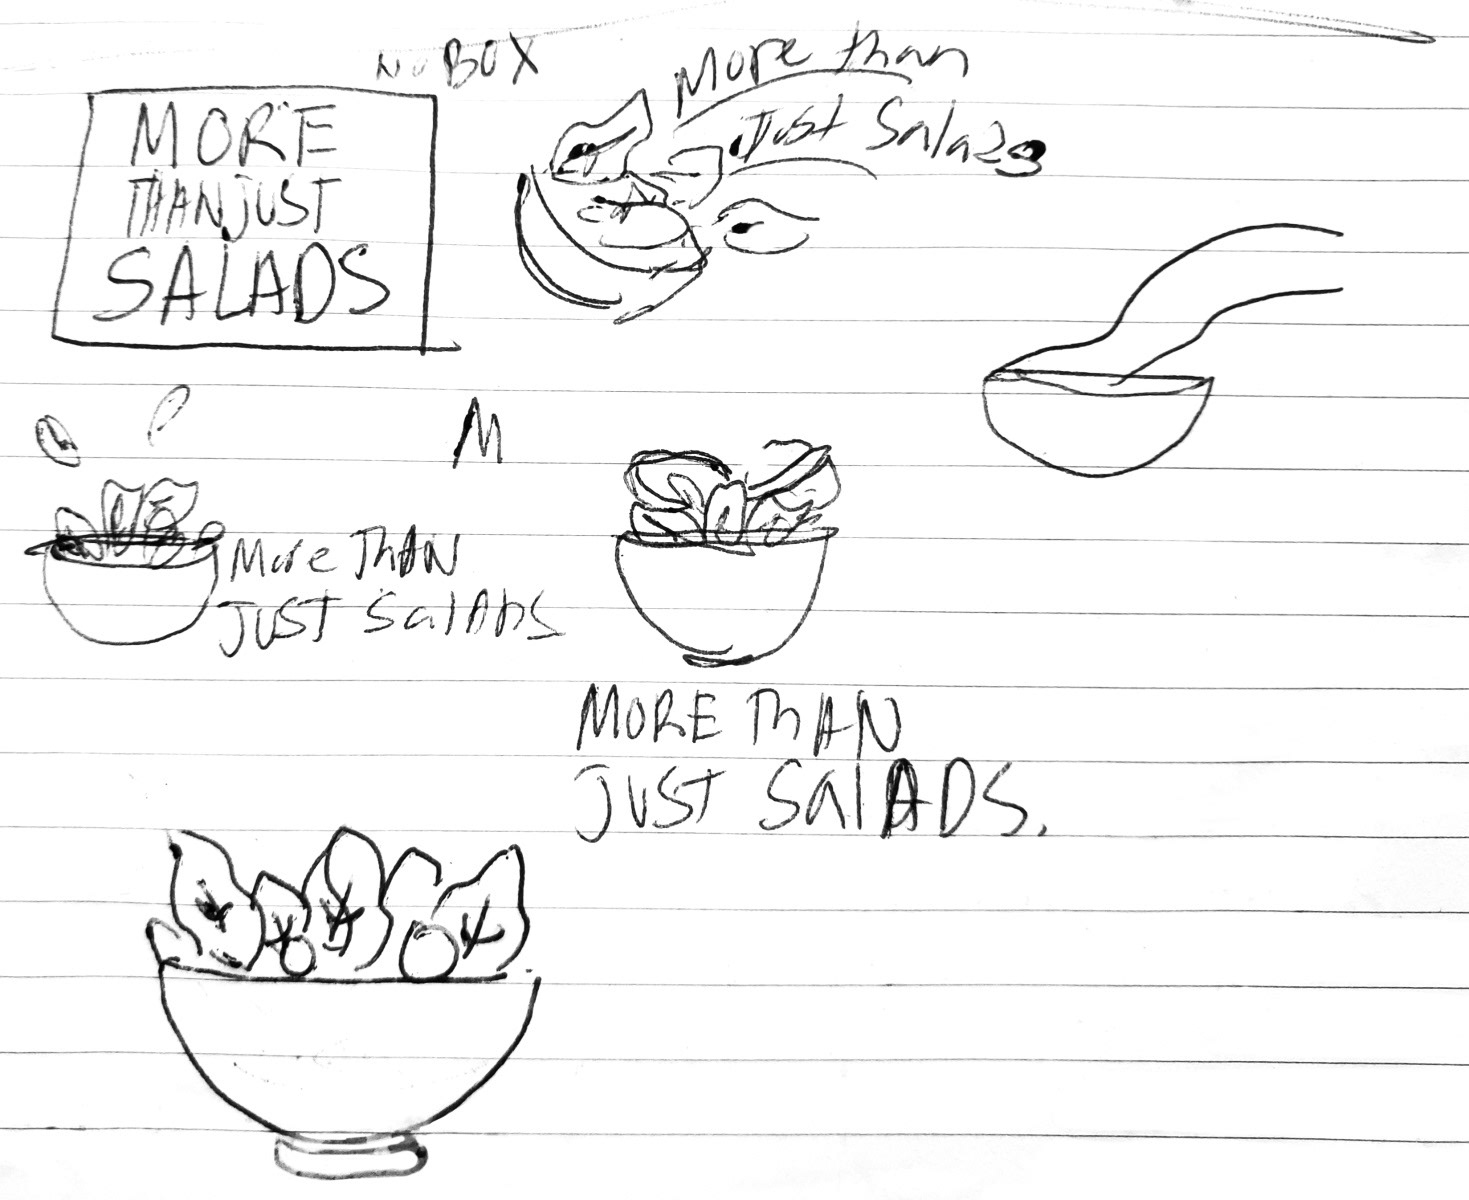 NO BOX
MORE
THAN JUST
SALADS
More than
Just Salads
M
More THAN
JUST SalADS
MORE ThAN
JUST SalADS.